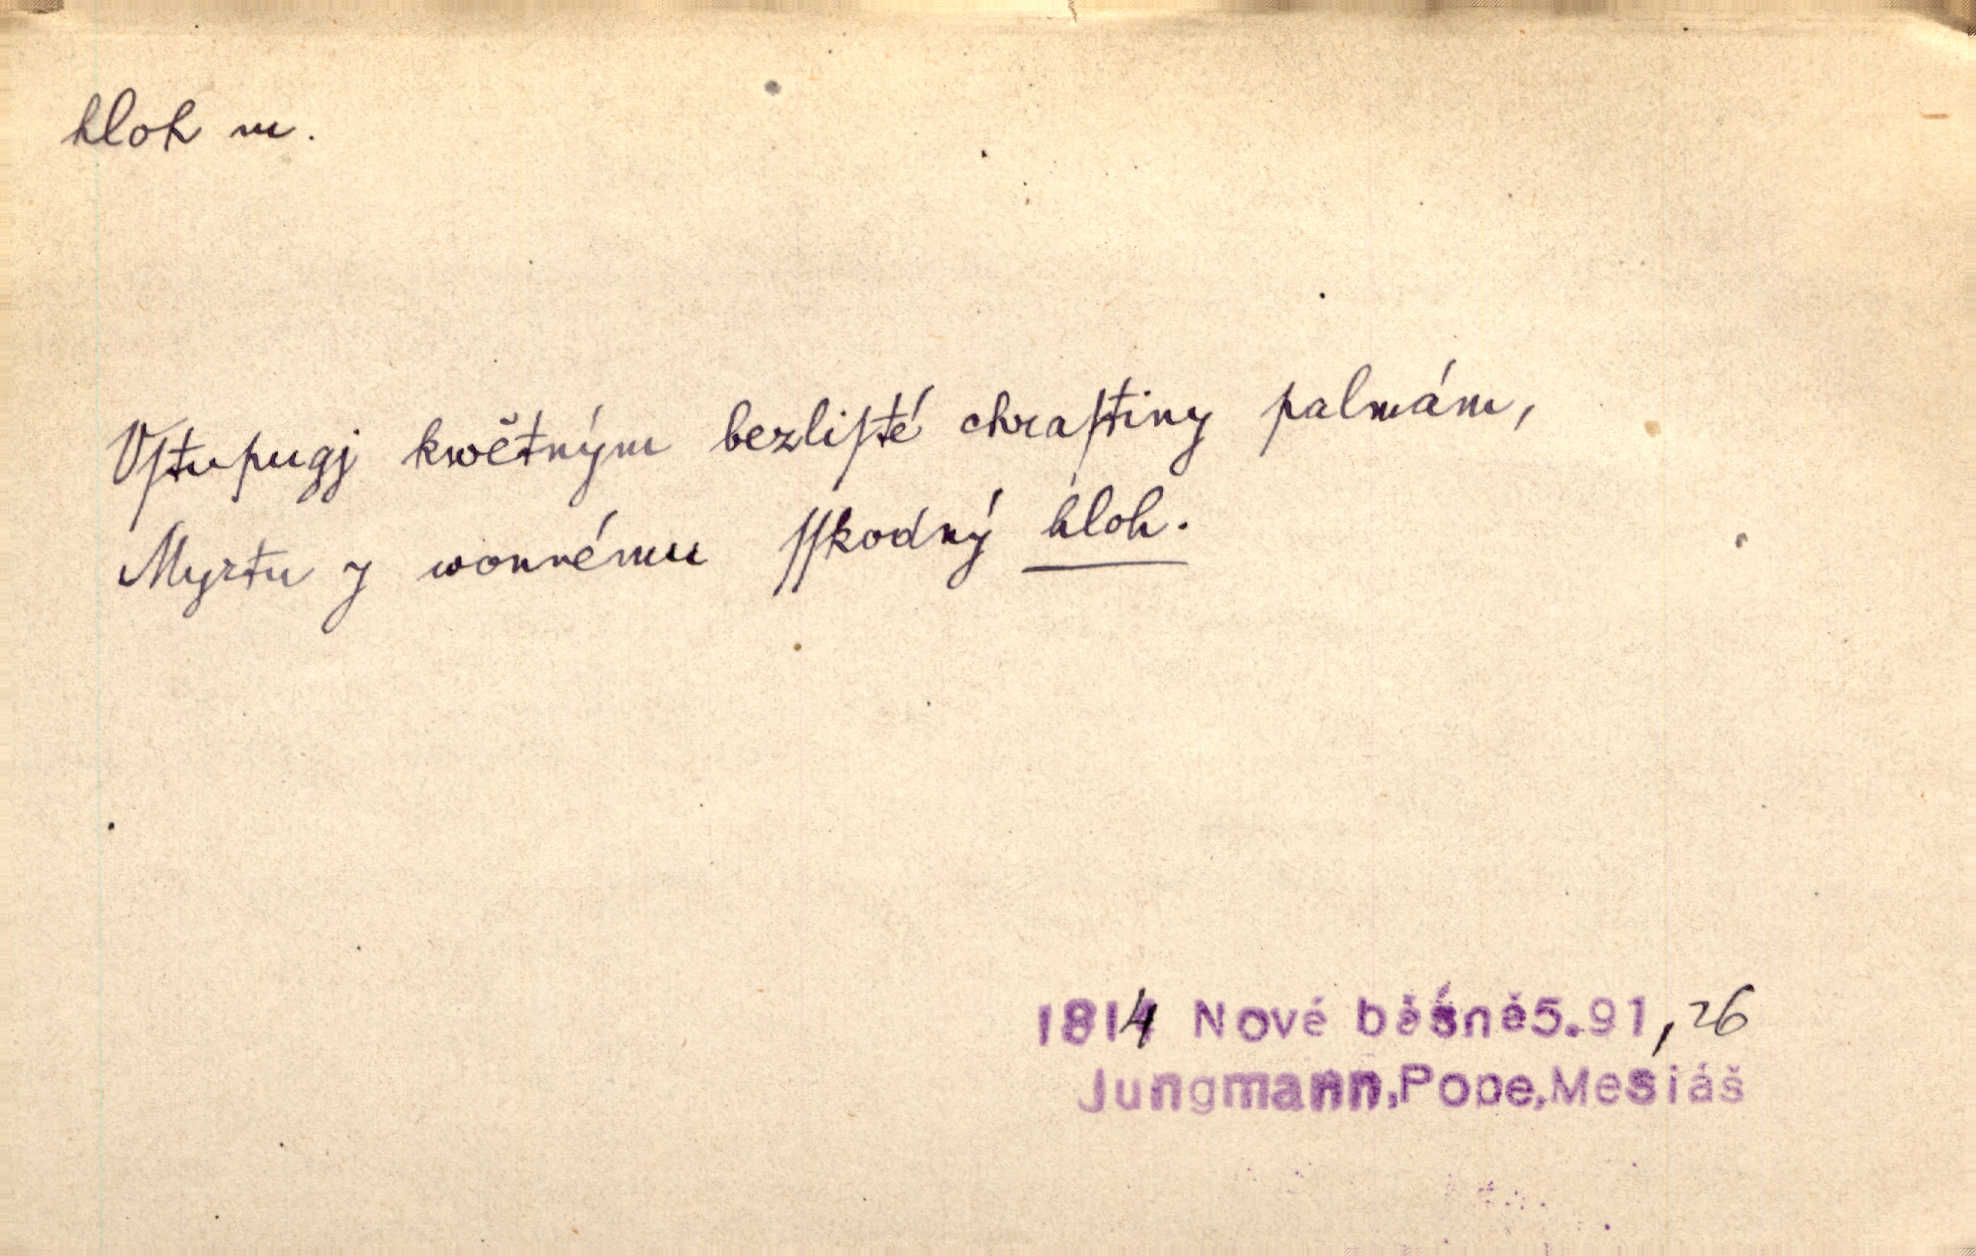 hloh m.
Vſtupugj kwětným bezliſté chraſtiny palmám,
Myrtu y wonnému ſſkodný hloh.
1814 Nové básně 5.91,26
Jungmann,Pope,Mesiáš